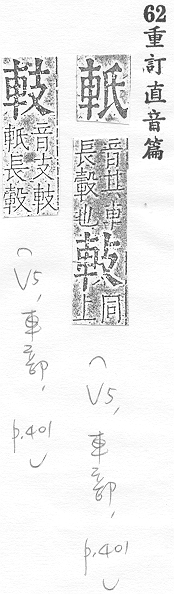 62重訂直音篇
軝
音 車
長轂也
同
上
(V5, 車部, p.401)
音支
軝長轂
(V5, 車部, p.401)